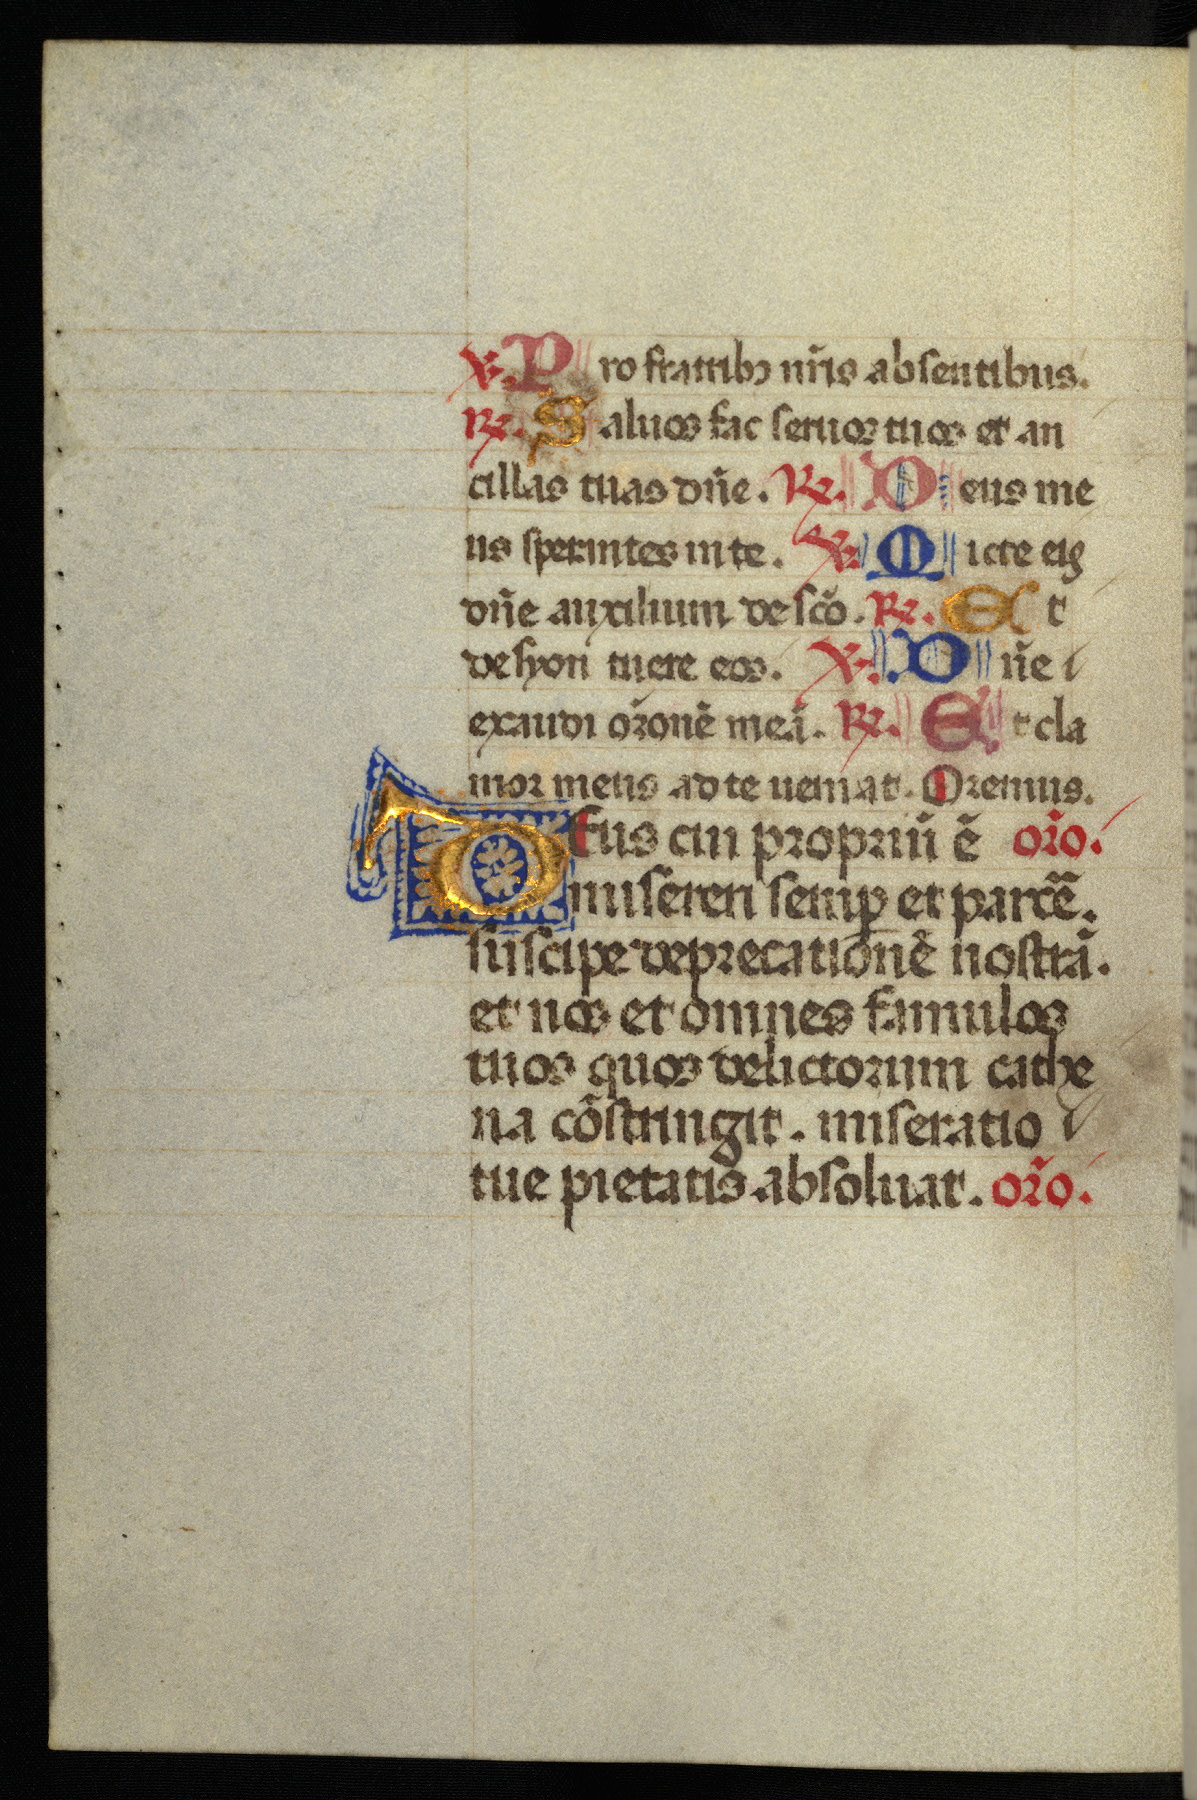 ℣. Pro fratribꝫ nr̃is absentibus.
℞. Saluos fac seruos tuos et an
cillas tuas dñe. ℞. Deus me
us sperantes in te. ℣. Micte eis
dñe auxilium de sc̃o. ℞. Et
de syon tuere eos. ℣. Dñe
exaudi or̃onẽ meã. ℞. Et cla
mor meus ad te ueniat. Oremus.
Deus cui propriũ ẽ or̃o.
misereri semp̲ et parcẽ.
suscipe deprecationẽ nostrã.
et nos et omnes famulos
tuos quos delictorum cathe
na cõstringit. miseratio
tue pietatis absoluat. or̃o.